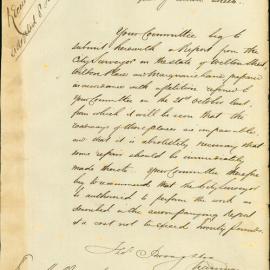 Your Committee beg to
submit herewith a Report from the
City Surveyor on the state of Welton Street
Place and prepared
in accordance with a petition referred to
your Committee on the 28th October last,
from which it will be seen that the
roadways of those places are impassable,
and that it is absolutely necessary that
some repairs should be immediately
made thereto. Your Committee therefore
beg to recommend that the City Surveyor
be authorized to perform the work as
described in the accompanying Report
at a cost not to exceed twenty pounds.
Chairman